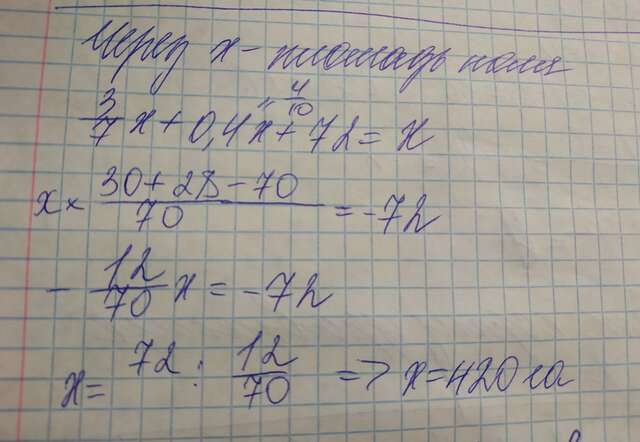 Через х - площадь поля
3/7 х + 0,4х + 72 = х
" 4/10
х × (30 + 28 - 70)/70 = -72
- 12/70 х = -72
х = 72 : 12/70 => х = 420 га